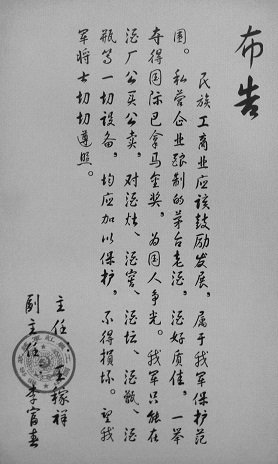 布告
民族工商业应该鼓励发展，属于我军保护范
围。私营企业酿制的茅台老酒，酒好质佳，一举
夺得国际巴拿马金奖，为国人争光。我军只能在
酒厂公买公卖，对酒灶、酒窖、酒坛、酒甑、酒
瓶等一切设备，均应加以保护，不得损坏。望我
军将士切切遵照。
主任 王稼祥
副主任 李富春